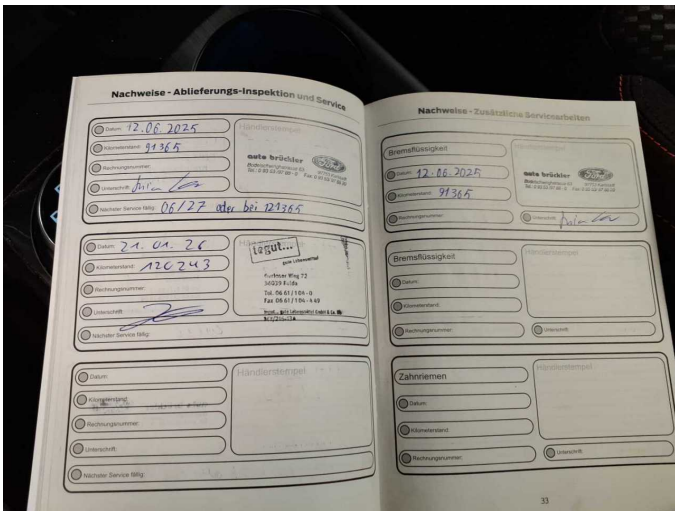 Nachweise - Ablieferungs-Inspektion und Service
Datum: 12.06.2025
Kilometerstand: 91365
Rechnungsnummer:
Unterschrift:
Nächster Service fällig: 06/27 oder bei 121365
Händlerstempel
auto brückler
Datum: 21.01.26
Kilometerstand: 120243
Rechnungsnummer:
Unterschrift:
Nächster Service fällig:
tegut...
gute Lebensmittel
Gerloser Weg 72
36039 Fulda
Tel. 06 61 / 1 04 - 0
Fax 06 61 / 1 04 - 4 49
Datum:
Kilometerstand:
Rechnungsnummer:
Unterschrift:
Nächster Service fällig:
Händlerstempel
Nachweise - Zusätzliche Servicearbeiten
Bremsflüssigkeit
Datum: 12.06.2025
Kilometerstand: 91365
Rechnungsnummer:
Händlerstempel
auto brückler
Unterschrift:
Bremsflüssigkeit
Datum:
Kilometerstand:
Rechnungsnummer:
Händlerstempel
Unterschrift:
Zahnriemen
Datum:
Kilometerstand:
Rechnungsnummer:
Händlerstempel
Unterschrift:
33